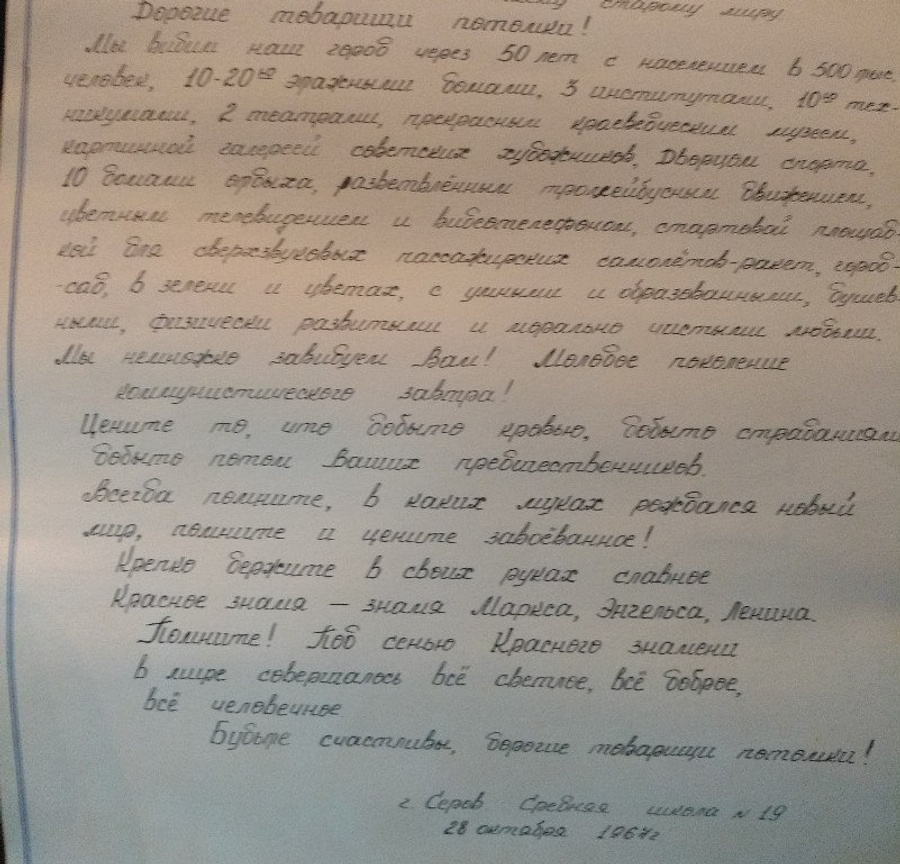 старому миру
Дорогие товарищи потомки!
Мы видим наш город через 50 лет с населением в 500 тыс.
человек, 10-20ти этажными домами, 3 институтами, 10ю тех-
никумами, 2 театрами, прекрасным краеведческим музеем,
картинной галереей советских художников, Дворцом спорта,
10 домами отдыха, разветвлённым троллейбусным движением,
цветным телевидением и видеотелефоном, стартовой площад-
кой для сверхзвуковых пассажирских самолётов-ракет, город-
-сад, в зелени и цветах, с умными и образованными, душев-
ными, физически развитыми и морально чистыми людьми.
Мы немножко завидуем Вам! Молодое поколение
коммунистического завтра!
Цените то, что добыто кровью, добыто страданиями
добыто потом Ваших предшественников.
Всегда помните, в каких муках рождался новый
мир, помните и цените завоёванное!
Крепко держите в своих руках славное
Красное знамя — знамя Маркса, Энгельса, Ленина.
Помните! Под сенью Красного знамени
в мире совершалось всё светлое, всё доброе,
всё человечное
Будьте счастливы, дорогие товарищи потомки!
г. Серов Средняя школа N 19
28 октября 1967г